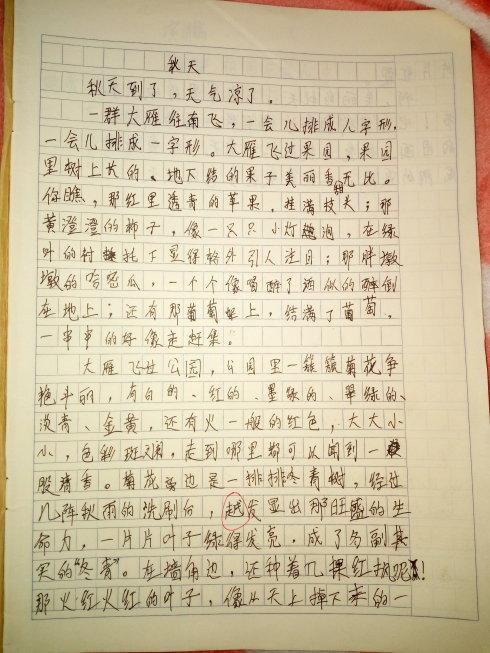 秋天
秋天到了，天气凉了。
一群大雁往南飞，一会儿排成人字形，
一会儿排成一字形。大雁飞过果园，果园
里树上长的、地下结的果子美丽香甜无比。
你瞧，那红里透青的苹果，挂满枝头；那
黄澄澄的柿子，像一只只小灯泡，在绿
叶的衬托下显得格外引人注目；那胖墩
墩的哈密瓜，一个个像喝醉了酒似的醉倒
在地上；还有那葡萄架上，结满了葡萄，
一串串的好像走赶集。
大雁飞过公园，公园里一簇簇菊花争
艳斗丽，有白的、红的、墨绿的、翠绿的、
淡青、金黄，还有火一般的红色，大大小
小，色彩斑斓，走到哪里都可以闻到一
股清香。菊花旁边是一排排冬青树，经过
几阵秋雨的洗刷后，越发显出那旺盛的生
命力，一片片叶子绿得发亮，成了名副其
实的“冬青”。在墙角边，还种着几棵红枫呢！
那火红火红的叶子，像从天上掉下来的一